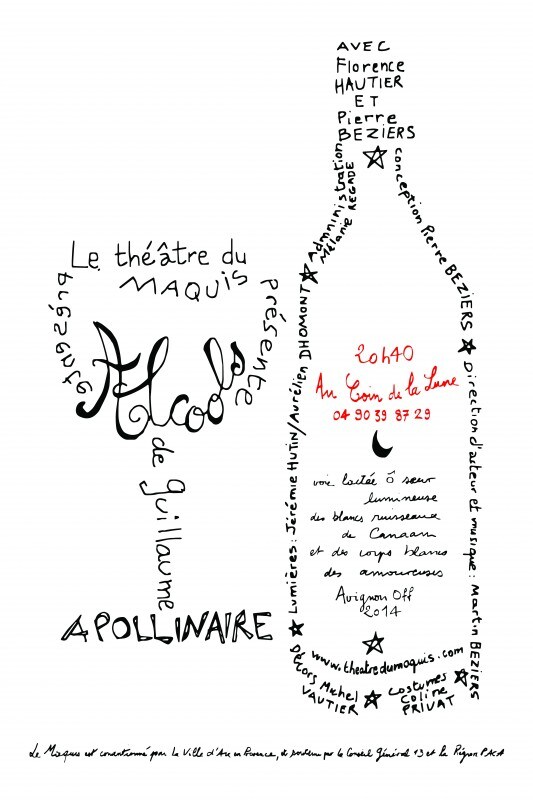 Le théâtre du
MAQUIS
présente
Alcools
de guillaume
APOLLINAIRE
AVEC
Florence
HAUTIER
ET
Pierre
BEZIERS
Administration
Mélanie REGADE
conception Pierre BEZIERS
Direction d'acteur et musique : Martin BEZIERS
Lumières : Jérémie HUTIN/Aurélien DHOMONT
20h40
Au Coin de la Lune
04 90 39 87 29
voie lactée ô sœur
lumineuse
des blancs ruisseaux
de Canaan
et des corps blancs
des amoureuses
Avignon Off
2014
www.theatredumaquis.com
Décors Michel
VAUTIER
costumes
Coline
PRIVAT
Le Maquis est conventionné par la Ville d'Aix en Provence, et soutenu par le Conseil Général 13 et la Région PACA